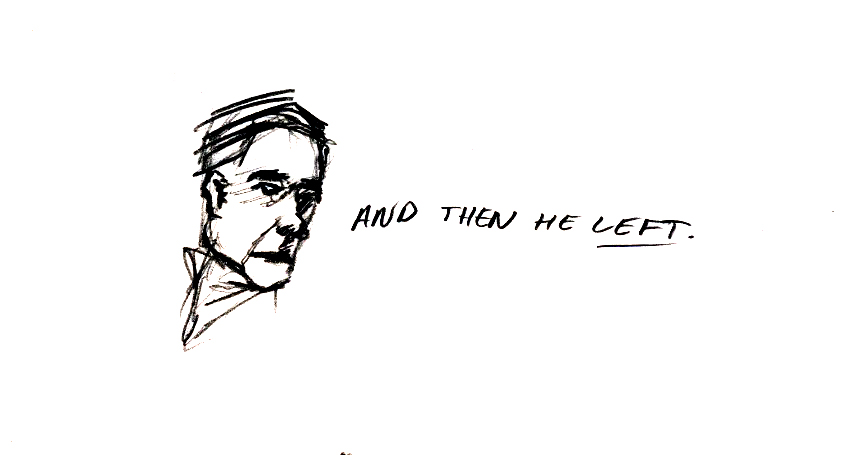 AND THEN HE LEFT.